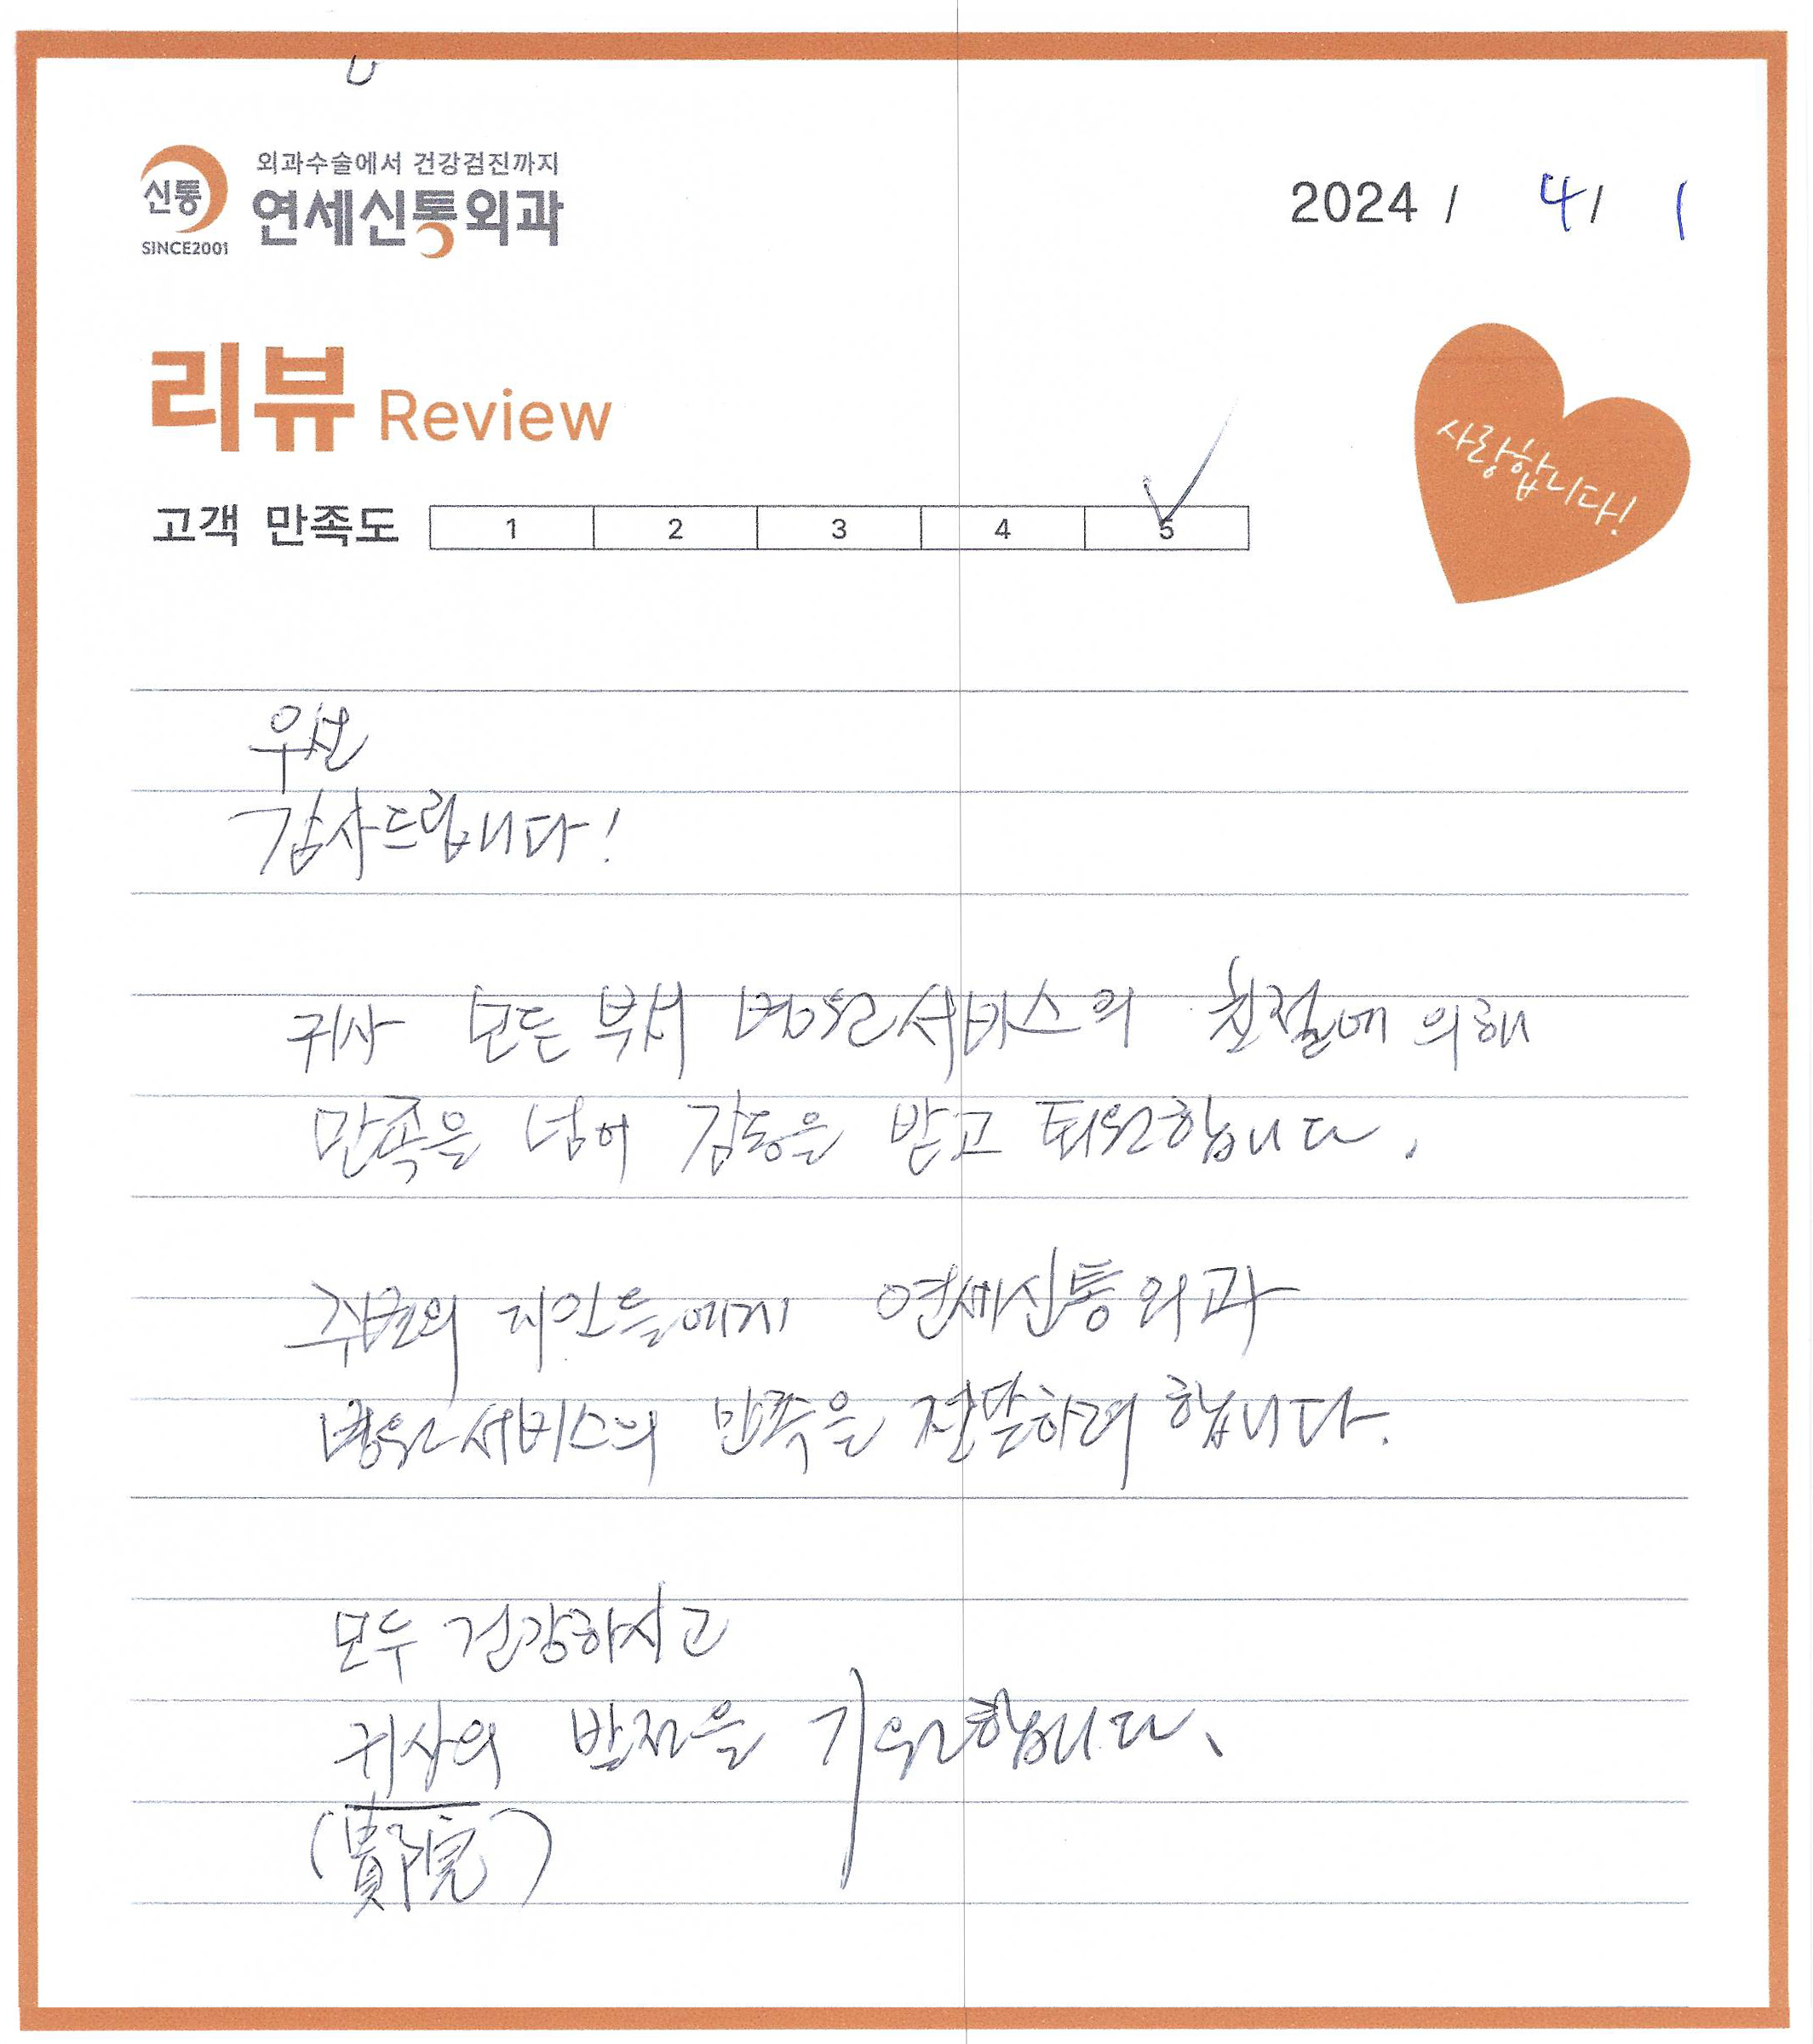 외과수술에서 건강검진까지
신통
SINCE2001
연세신통외과
2024 / 4 / 1
리뷰 Review
사랑합니다!
고객 만족도 1 2 3 4 5
우선
감사드립니다!
귀사 모든 부서 병원서비스의 친절에 의해
만족을 넘어 감동을 받고 퇴원합니다.
주변의 지인들에게 연세신통외과
병원서비스의 만족을 전달하려 합니다.
모두 건강하시고
귀사의 발전을 기원합니다.
(貴院)